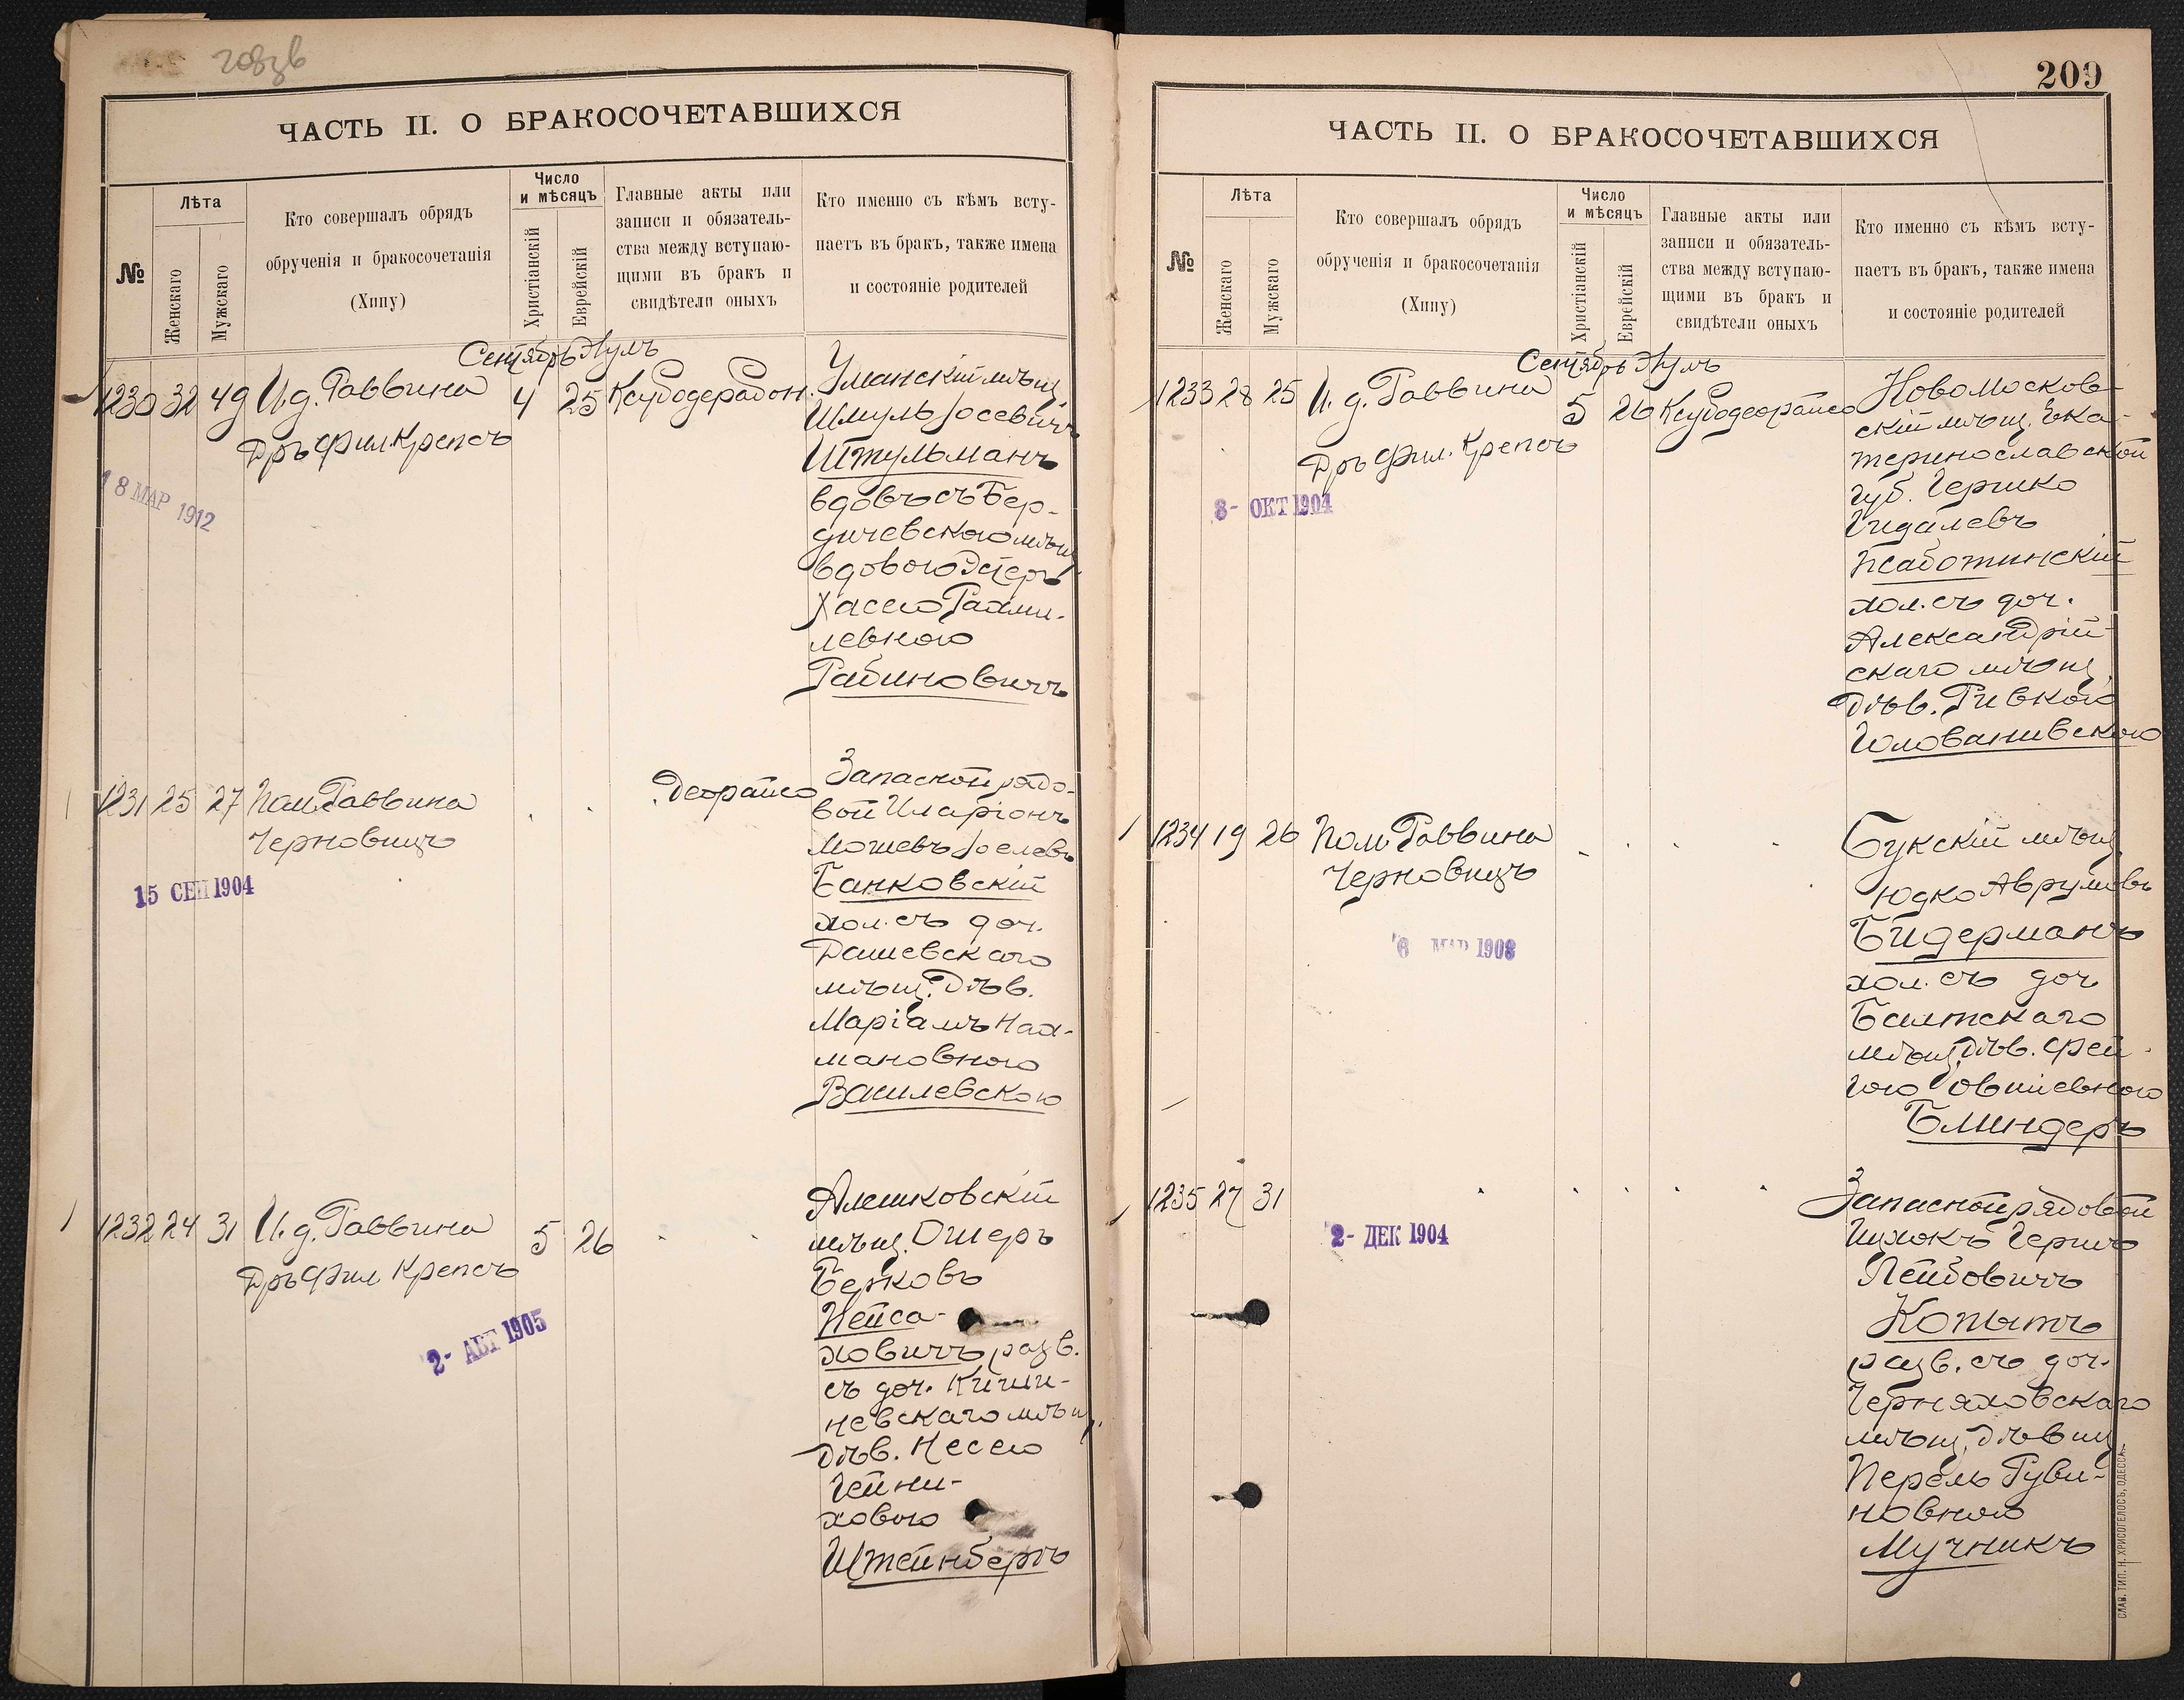 ЧАСТЬ II. О БРАКОСОЧЕТАВШИХСЯ
№
Лѣта
Женскаго
Мужскаго
Кто совершалъ обрядъ
обрученія и бракосочетанія
(Хипу)
Число
и мѣсяцъ
Христіанскій
Еврейскій
Главные акты или
записи и обязатель-
ства между вступаю-
щими въ бракъ и
свидѣтели оныхъ
Кто именно съ кѣмъ всту-
паетъ въ бракъ, также имена
и состояніе родителей
Сентябрь Элулъ
1230 32 49 И.д. Раввина 4 25
Дръ Фил. Крепсъ
18 МАР 1912
Уманскій мѣщ.
Шмуль Іосевичъ
Штульманъ
вдовъ съ Бер-
дичевскою мѣщ.
вдовою Эстеръ
Хасею Рахми-
левною
Рабиновичъ
1231 25 27 Пом. Раввина Деорайсо
Черновицъ
15 СЕН 1904
Запасной рядо-
вой Иларіонъ
Мошевъ Іоселевъ
Банковскій
хол. съ доч.
Дашевскаго
мѣщ. Дѣв.
Маріамъ Нах-
мановною
Василевскою
1232 24 31 И.д. Раввина 5 26
Дръ Фил Крепсъ
2- АВГ 1905
Алешковскій
мѣщ. Ошеръ
Берковъ
Нейса-
ховичъ разв.
съ доч. Киши-
невскаго мѣщ.
Дѣв. Несею
Гейни-
ховою
Штейнбергъ
209
ЧАСТЬ II. О БРАКОСОЧЕТАВШИХСЯ
№
Лѣта
Женскаго
Мужскаго
Кто совершалъ обрядъ
обрученія и бракосочетанія
(Хипу)
Число
и мѣсяцъ
Христіанскій
Еврейскій
Главные акты или
записи и обязатель-
ства между вступаю-
щими въ бракъ и
свидѣтели оныхъ
Кто именно съ кѣмъ всту-
паетъ въ бракъ, также имена
и состояніе родителей
Сентябрь Элулъ
1233 28 25 И.д. Раввина 5 26 Ксубодеорайсо
Дръ Фил. Крепсъ
8- ОКТ 1904
Новомосков-
скій мѣщ. Ека-
теринославской
губ. Гершко
Гидалевъ
Жаботинскій
хол. съ доч.
Александрій-
скаго мѣщ.
Дѣв. Ривкою
Голованивскою
1234 19 26 Пом. Раввина
Черновицъ
6 МАР 1908
Букскій мѣщ.
Юдко Аврумовъ
Бидерманъ
хол. съ доч
Балтскаго
мѣщ. Дѣв. Фей-
гою Іовшіевною
Блиндеръ
1235 27 31
2- ДЕК 1904
Запасной рядовой
Ицхокъ Гершъ
Лейбовичъ
Копытъ
разв. съ доч.
Черняховскаго
мѣщ. Дѣвиц
Перель Руви-
новною
Мучникъ
СЛАВ. ТИП. Н. ХРИСОГЕЛОСЪ, ОДЕССА.